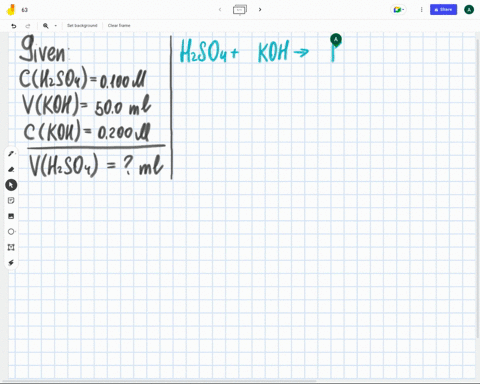 63
Share
A
Set background
Clear frame
A
Given:
C(H₂SO₄)=0.100 M
V(KOH)= 50.0 ml
C(KOH)= 0.200 M
V(H₂SO₄) = ? ml
H₂SO₄+ KOH →